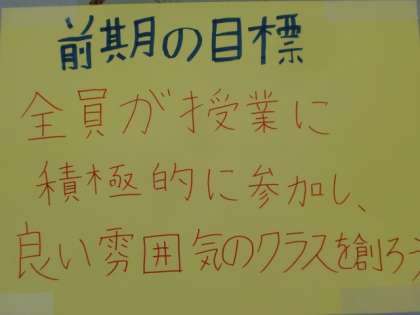 前期の目標
全員が授業に
積極的に参加し、
良い雰囲気のクラスを創ろう